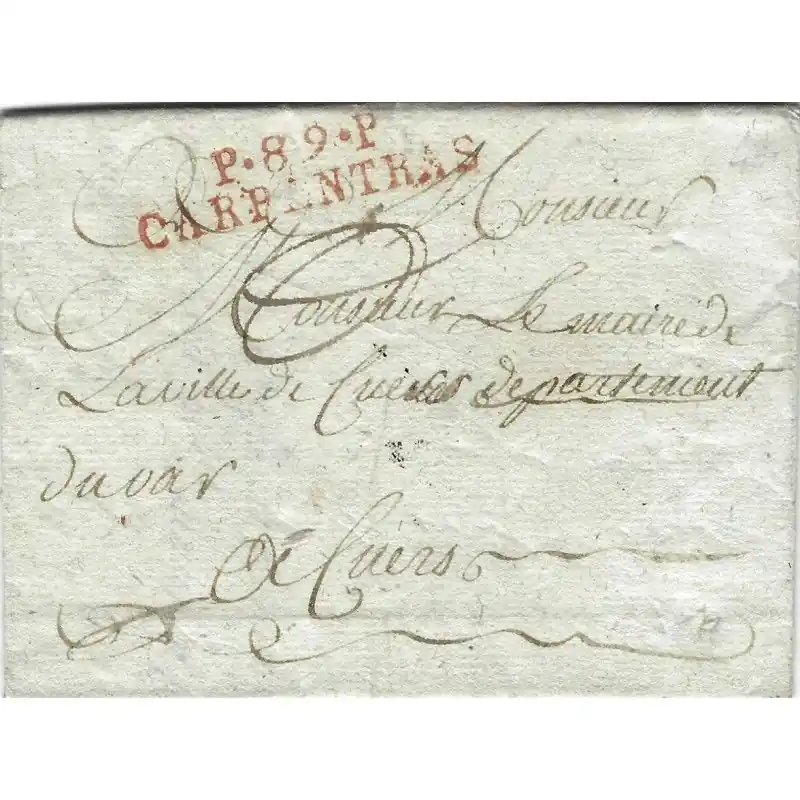 P.89.P
CARPENTRAS
Monsieur
Monsieur Le maire de
La ville de Cuers departement
du var
De Cuèrs